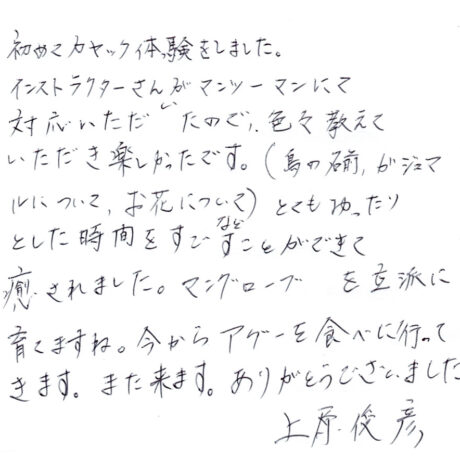 初めてカヤック体験をしました。
インストラクターさんがマンツーマンにて
対応いただいたので、色々教えて
いただき楽しかったです。(鳥の名前、ガジュマ
ルについて、お花についてなど)とてもゆったり
とした時間をすごすことができて
癒されました。マングローブを立派に
育てますね。今からアグーを食べに行って
きます。また来ます。ありがとうございました
上原俊彦